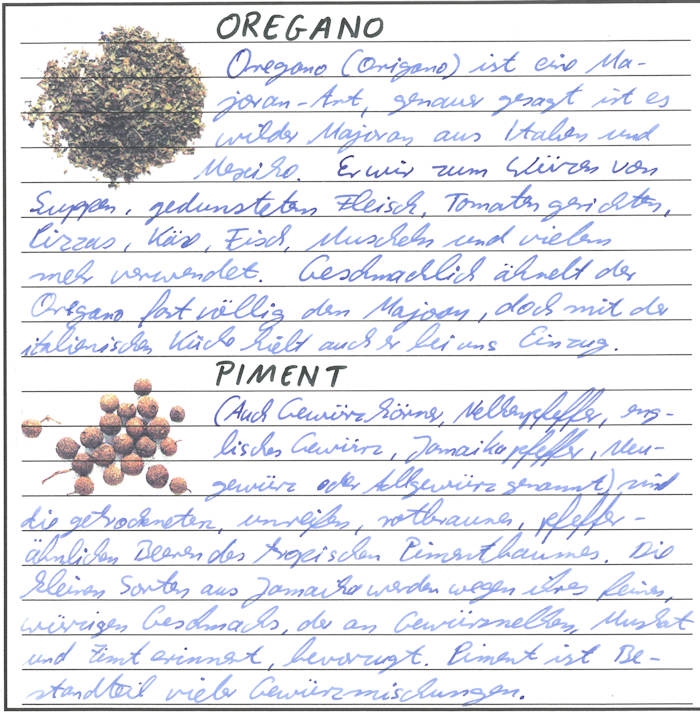 OREGANO
Oregano (Origano) ist eine Ma-
joran-Art, genauer gesagt ist es
wilder Majoran aus Italien und
Mexiko. Er wir zum Würzen von
Suppen, gedünsteten Fleisch, Tomatengerichten,
Pizzas, Käse, Fisch, Muscheln und vielem
mehr verwendet. Geschmacklich ähnelt der
Oregano fast völlig den Majoran, doch mit der
italienischen Küche hielt auch er bei uns Einzug.
PIMENT
(Auch Gewürzkörner, Nelkenpfeffer, eng-
lisches Gewürz, Jamaikapfeffer, Neu-
gewürz oder Allgewürz genannt) sind
die getrockneten, unreifen, rotbraunen, pfeffer-
ähnlichen Beeren des tropischen Pimentbaumes. Die
kleinen Sorten aus Jamaika werden wegen ihres feinen,
würzigen Geschmacks, der an Gewürznelken, Muskat
und Zimt erinnert, bevorzugt. Piment ist Be-
standteil vieler Gewürzmischungen.